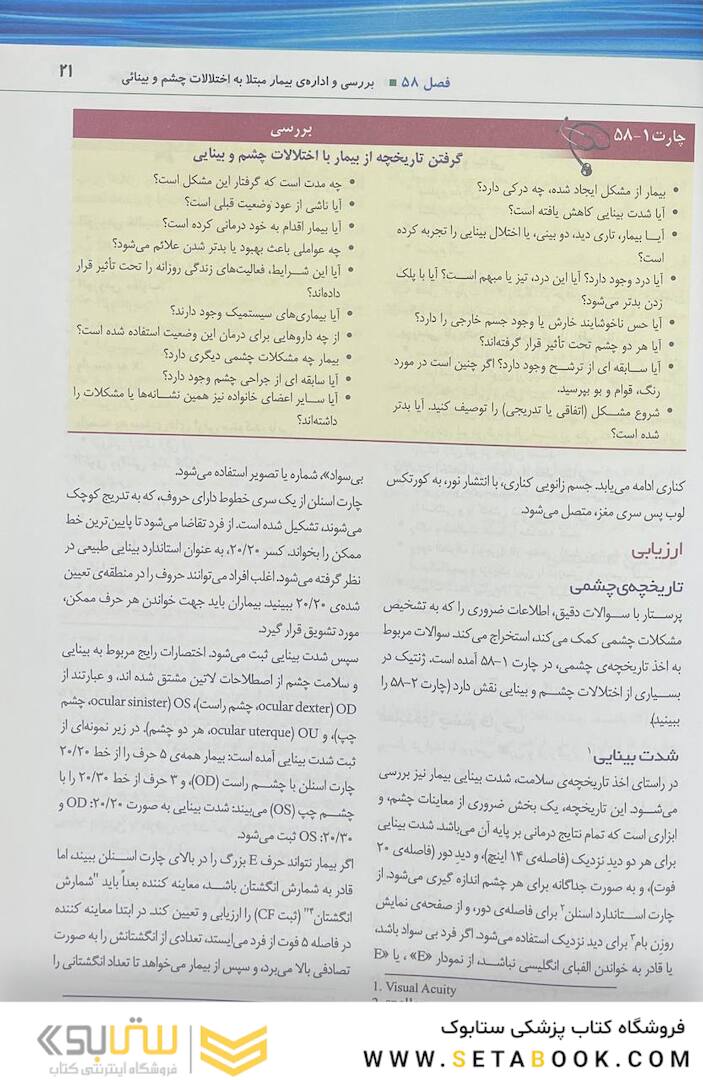 فصل ۵۸ ■ بررسی و اداره‌ی بیمار مبتلا به اختلالات چشم و بینائی
۲۱
چارت ۱-۵۸
بررسی
گرفتن تاریخچه از بیمار با اختلالات چشم و بینایی
• بیمار از مشکل ایجاد شده، چه درکی دارد؟
• آیا شدت بینایی کاهش یافته است؟
• آیـا بیمار، تاری دید، دو بینی، یا اختلال بینایی را تجربه کرده
است؟
• آیا درد وجود دارد؟ آیا این درد، تیز یا مبهم اسـت؟ آیا با پلک
زدن بدتر می‌شود؟
• آیا حس ناخوشایند خارش یا وجود جسم خارجی را دارد؟
• آیا هر دو چشم تحت تأثیر قرار گرفته‌اند؟
• آیا سـابقه ای از ترشـح وجود دارد؟ اگر چنین است در مورد
رنگ، قوام و بو بپرسید.
• شروع مشـکل (اتفاقی یا تدریجی) را توصیف کنید. آیا بدتر
شده است؟
• چه مدت است که گرفتار این مشکل است؟
• آیا ناشی از عود وضعیت قبلی است؟
• آیا بیمار اقدام به خود درمانی کرده است؟
• چه عواملی باعث بهبود یا بدتر شدن علائم می‌شود؟
• آیا این شرایط، فعالیت‌های زندگی روزانه را تحت تأثیر قرار
داده‌اند؟
• آیا بیماری‌های سیستمیک وجود دارند؟
• از چه داروهایی برای درمان این وضعیت استفاده شده است؟
• بیمار چه مشکلات چشمی دیگری دارد؟
• آیا سابقه ای از جراحی چشم وجود دارد؟
• آیا سـایر اعضای خانواده نیز همین نشـانه‌ها یا مشکلات را
داشته‌اند؟
کناری ادامه می‌یابد. جسم زانویی کناری، با انتشار نور، به کورتکس
لوب پس سری مغز، متصل می‌شود.
ارزیابی
تاریخچه‌ی چشمی
پرسـتار با سـوالات دقیق، اطلاعات ضروری را که به تشخیص
مشکلات چشمی کمک می‌کند، استخراج می‌کند. سوالات مربوط
به اخذ تاریخچه‌ی چشمی، در چارت ۱-۵۸ آمده است. ژنتیک در
بسیاری از اختلالات چشـم و بینایی نقش دارد (چارت ۲-۵۸ را
ببینید)
شدت بینایی۱
در راستای اخذ تاریخچه‌ی سلامت، شدت بینایی بیمار نیز بررسی
می‌شـود. این تاریخچه، یک بخش ضروری از معاینات چشم، و
ابزاری است که تمام نتایج درمانی بر پایه آن می‌باشد. شدت بینایی
برای هر دو دیدِ نزدیک (فاصله‌ی ۱۴ اینچ)، و دیدِ دور (فاصله‌ی ۲۰
فوت)، و به صورت جداگانه برای هر چشم اندازه گیری می‌شود. از
چارت اسـتاندارد اسنلن۲ برای فاصله‌ی دور، و از صفحه‌ی نمایش
روزن بام۳ برای دید نزدیک استفاده می‌شود. اگر فرد بی سواد باشد،
یا قادر به خواندن الفبای انگلیسی نباشـد، از نمودار «E» ، یا «E
بی‌سواد»، شماره یا تصویر استفاده می‌شود.
چارت اسنلن از یک سری خطوط دارای حروف، که به تدریج کوچک
می‌شوند، تشکیل شده است. از فرد تقاضا می‌شود تا پایین‌ترین خط
ممکن را بخواند. کسر ۲۰/۲۰، به عنوان استاندارد بینایی طبیعی در
نظر گرفته می‌شود. اغلب افراد می‌توانند حروف را در منطقه‌ی تعیین
شده‌ی ۲۰/۲۰ ببینید. بیماران باید جهت خواندن هر حرف ممکن،
مورد تشویق قرار گیرد.
سپس شدت بینایی ثبت می‌شود. اختصارات رایج مربوط به بینایی
و سلامت چشم از اصطلاحات لاتین مشتق شده اند، و عبارتند از
OD (ocular dexter، چشم راست)، OS (ocular sinister، چشم
چپ)، و OU (ocular uterque، هر دو چشم). در زیر نمونه‌ای از
ثبت شدت بینایی آمده است: بیمار همه‌ی ۵ حرف را از خط ۲۰/۲۰
چارت اسنلن با چشـم راست (OD)، و ۳ حرف از خط ۲۰/۳۰ را با
چشـم چپ (OS) می‌بیند: شدت بینایی به صورت ۲۰/۲۰: OD و
۲۰/۳۰: OS ثبت می‌شود.
اگر بیمار نتواند حرف E بزرگ را در بالای چارت اسـنلن ببیند، اما
قادر به شمارش انگشتان باشـد، معاینه کننده بعداً باید "شمارش
انگشتان۴" (ثبت CF) را ارزیابی و تعیین کند. در ابتدا معاینه کننده
در فاصله ۵ فوت از فرد می‌ایستد، تعدادی از انگشتانش را به صورت
تصادفی بالا می‌برد، و سپس از بیمار می‌خواهد تا تعداد انگشتانی را
1. Visual Acuity
فروشگاه کتاب پزشکی ستابوک
WWW.SETABOOK.COM
ستابوک
فروشگاه اینترنتی کتاب